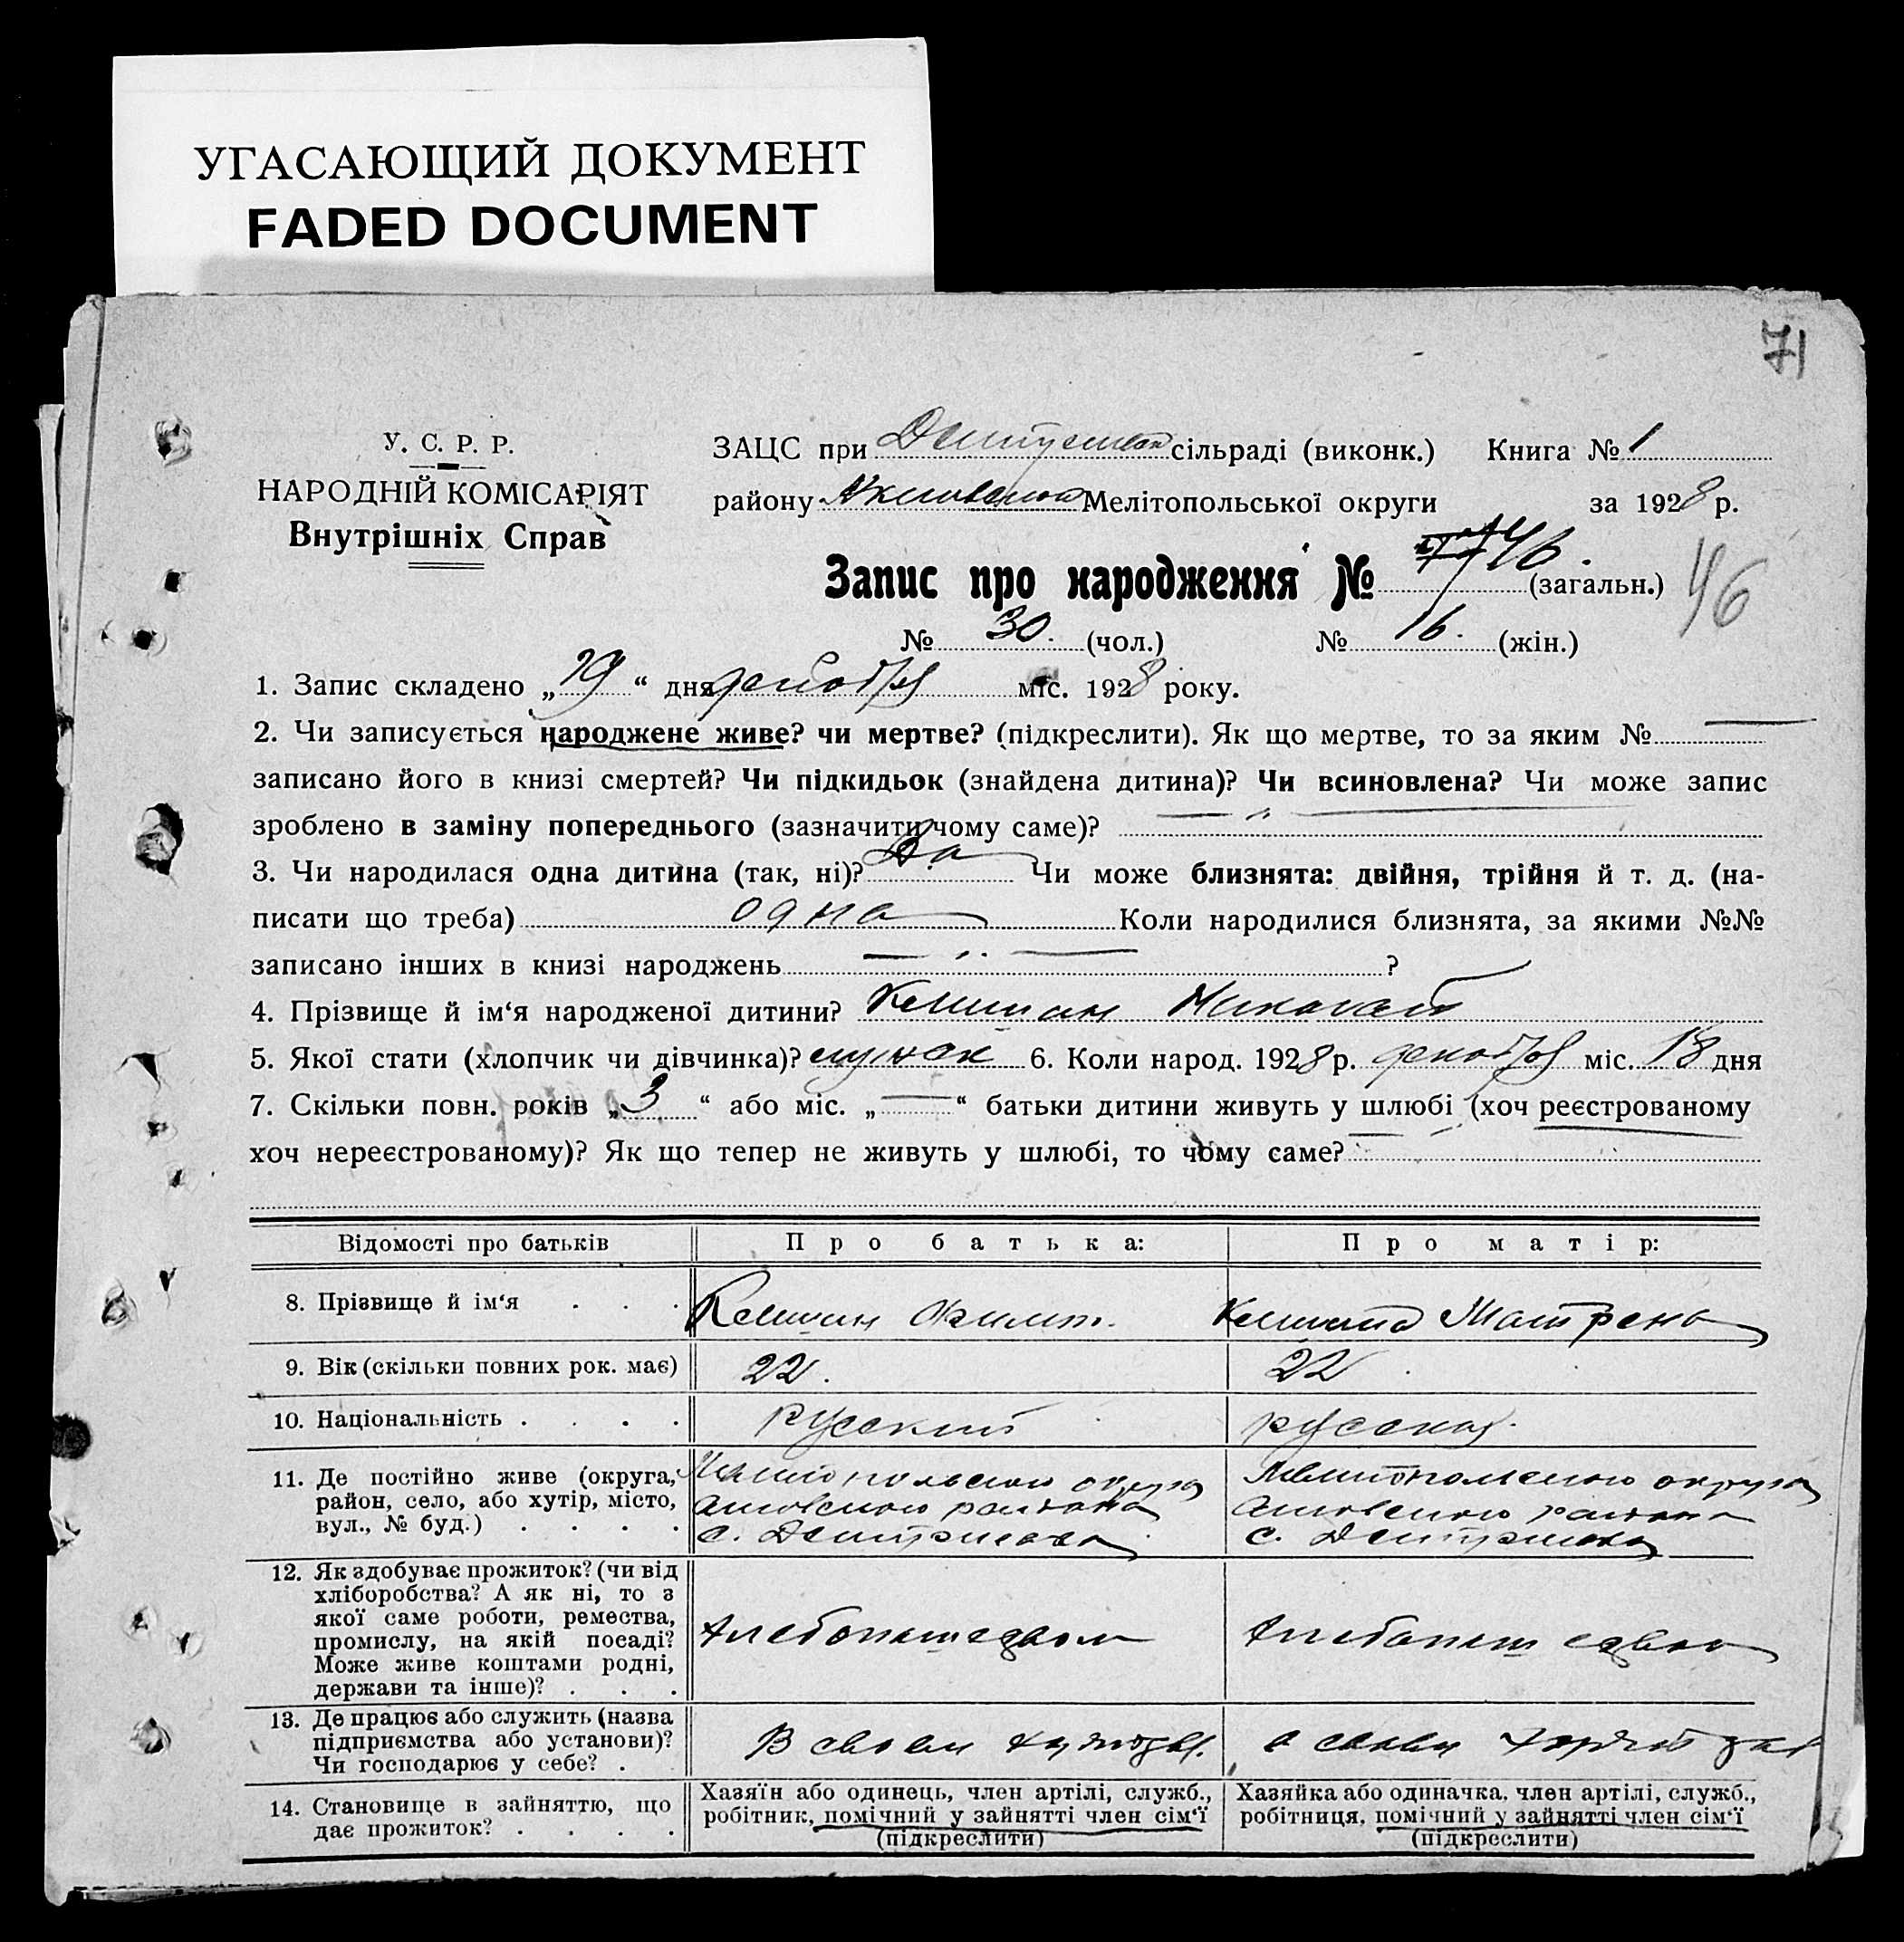 УГАСАЮЩИЙ ДОКУМЕНТ
FADED DOCUMENT
71
У. С. Р. Р.
НАРОДНІЙ КОМІСАРІЯТ
Внутрішніх Справ
ЗАЦС при сільраді (виконк.) Книга № 1
району Мелітопольської округи за 1928 р.
Запис про народження № 46. (загальн.) 46
№ 30. (чол.) № 16. (жін.)
1. Запис складено „19“ дня декабря міс. 1928 року.
2. Чи записується народжене живе? чи мертве? (підкреслити). Як що мертве, то за яким № —
записано його в книзі смертей? Чи підкидьок (знайдена дитина)? Чи всиновлена? Чи може запис
зроблено в заміну попереднього (зазначити чому саме)? — „ —
3. Чи народилася одна дитина (так, ні)? Да Чи може близнята: двійня, трійня й т. д. (на-
писати що треба) одна Коли народилися близнята, за якими №№
записано інших в книзі народжень — „ — ?
4. Прізвище й ім‘я народженої дитини? Николай
5. Якої стати (хлопчик чи дівчинка)? 6. Коли народ. 1928 р. декабря міс. 18 дня
7. Скільки повн. років „3“ або міс. „—“ батьки дитини живуть у шлюбі (хоч реєстрованому
хоч нереєстрованому)? Як що тепер не живуть у шлюбі, то чому саме?
Відомості про батьків Про батька: Про матір:
8. Прізвище й ім‘я Матрена
9. Вік (скільки повних рок. має) 22. 22.
10. Національність русский русская
11. Де постійно живе (округа, Мелитопольского округа
район, село, або хутір, місто, района района
вул., № буд.) с. с.
12. Як здобуває прожиток? (чи від
хліборобства? А як ні, то з
якої саме роботи, ремества,
промислу, на якій посаді? Хлебопашеством Хлебопашеством
Може живе коштами родні,
держави та інше)?
13. Де працює або служить (назва
підприємства або установи)? В своем в своем
Чи господарює у себе?
14. Становище в зайняттю, що
дає прожиток?
Хазяїн або одинець, член артілі, служб.,
робітник, помічний у зайнятті член сім‘ї
(підкреслити)
Хазяйка або одиначка, член артілі, служб.,
робітниця, помічний у зайнятті член сім‘ї
(підкреслити)